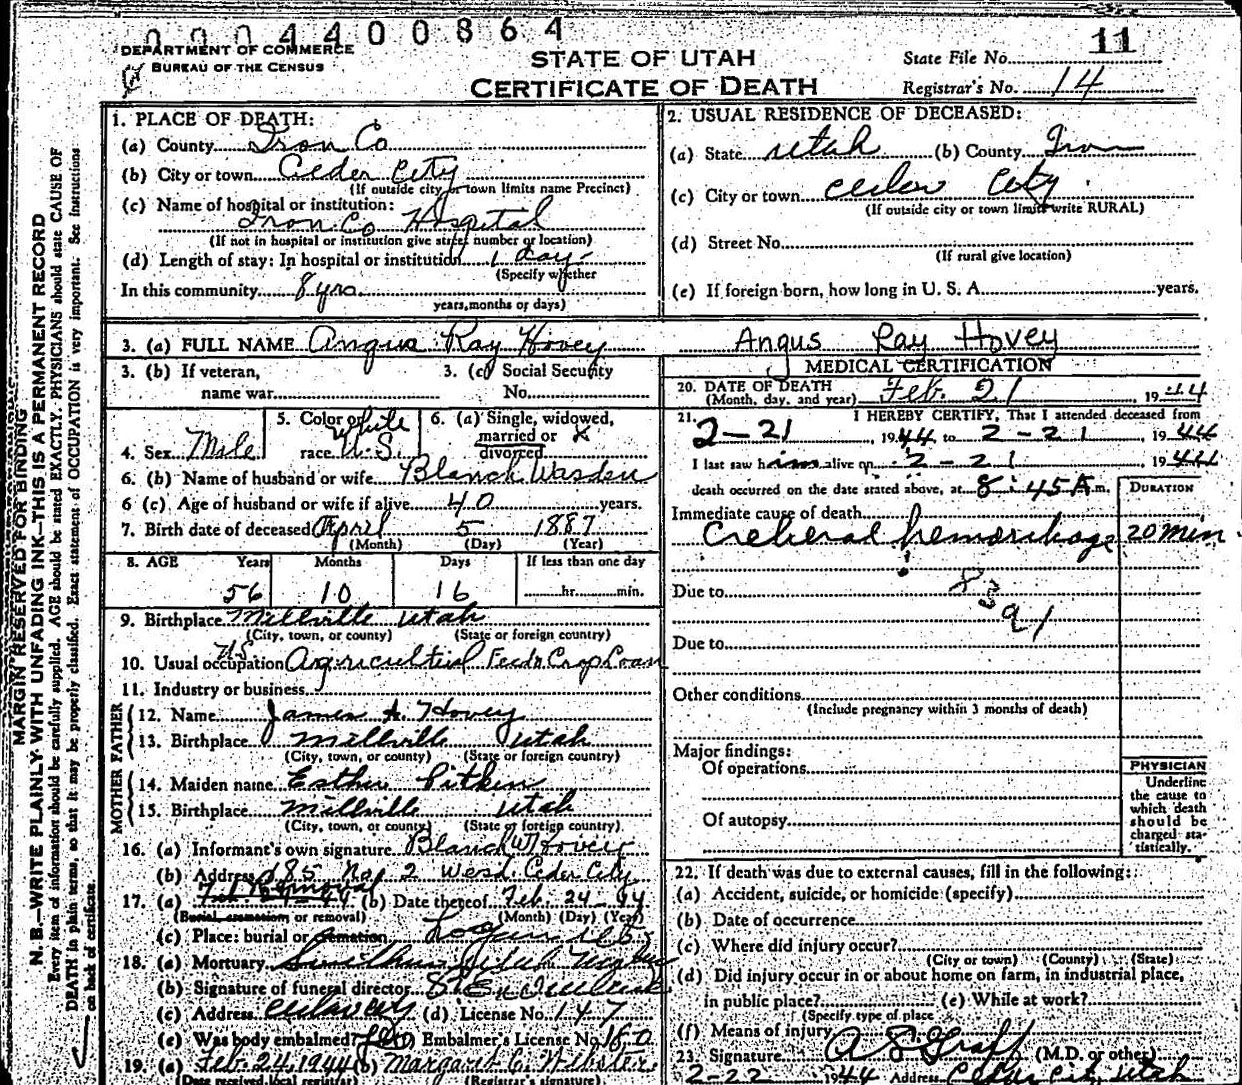 0004400864
DEPARTMENT OF COMMERCE
BUREAU OF THE CENSUS
STATE OF UTAH
CERTIFICATE OF DEATH
State File No. 11
Registrar's No. 14
MARGIN RESERVED FOR BINDING
N. B.—WRITE PLAINLY WITH UNFADING INK—THIS IS A PERMANENT RECORD
Every item of information should be carefully supplied. AGE should be stated EXACTLY. PHYSICIANS should state CAUSE OF
DEATH in plain terms, so that it may be properly classified. Exact statement of OCCUPATION is very important. See instructions
on back of certificate.
1. PLACE OF DEATH:
(a) County Iron Co
(b) City or town Ceder City
(If outside city or town limits name Precinct)
(c) Name of hospital or institution:
Iron Co Hospital
(If not in hospital or institution give street number or location)
(d) Length of stay: In hospital or institution 1 day
(Specify whether
In this community 8 yrs.
years, months or days)
2. USUAL RESIDENCE OF DECEASED:
(a) State Utah (b) County Iron
(c) City or town Cedar City
(If outside city or town limits write RURAL)
(d) Street No.
(If rural give location)
(e) If foreign born, how long in U. S. A. years.
3. (a) FULL NAME Angus Ray Hovey Angus Ray Hovey
3. (b) If veteran, name war
3. (c) Social Security No.
4. Sex Male
5. Color or race White U.S.
6. (a) Single, widowed, married or divorced X
6. (b) Name of husband or wife Blanch Warden
6 (c) Age of husband or wife if alive 40 years.
7. Birth date of deceased April 5 1887
(Month) (Day) (Year)
8. AGE Years Months Days If less than one day
56 10 16 hr. min.
9. Birthplace Millville Utah
(City, town, or county) (State or foreign country)
10. Usual occupation U.S. Agricultural Feed & Crop Loan
11. Industry or business
FATHER
12. Name James A. Hovey
13. Birthplace Millville Utah
(City, town, or county) (State or foreign country)
MOTHER
14. Maiden name Esther Pitkin
15. Birthplace Millville Utah
(City, town, or county) (State or foreign country)
16. (a) Informant's own signature Blanch W Hovey
(b) Address 185 No. 2 West Ceder City
17. (a) Removal (b) Date thereof Feb. 24-44
(Burial, cremation or removal) (Month) (Day) (Year)
(c) Place: burial or cremation Logan
18. (a) Mortuary
(b) Signature of funeral director
(c) Address Cedar City (d) License No. 147
(e) Was body embalmed? Yes Embalmer's License No. 160
19. (a) Feb. 24, 1944 (b) Margaret C. Webster
(Date received local registrar) (Registrar's signature)
MEDICAL CERTIFICATION
20. DATE OF DEATH Feb. 21, 1944
(Month, day, and year)
21. I HEREBY CERTIFY, That I attended deceased from
2-21, 1944 to 2-21, 1944
I last saw him alive on 2-21 1944
death occurred on the date stated above, at 8:45 A.m.
DURATION
Immediate cause of death
Creberal hemorihage 20 min
Due to
8391
Due to
Other conditions
(Include pregnancy within 3 months of death)
Major findings:
Of operations
Of autopsy
PHYSICIAN
Underline
the cause to
which death
should be
charged sta-
tistically.
22. If death was due to external causes, fill in the following:
(a) Accident, suicide, or homicide (specify)
(b) Date of occurrence
(c) Where did injury occur?
(City or town) (County) (State)
(d) Did injury occur in or about home on farm, in industrial place,
in public place? (e) While at work?
(Specify type of place
(f) Means of injury
23. Signature A L Graff (M.D. or other)
2-22 1944 Address Cedar City Utah